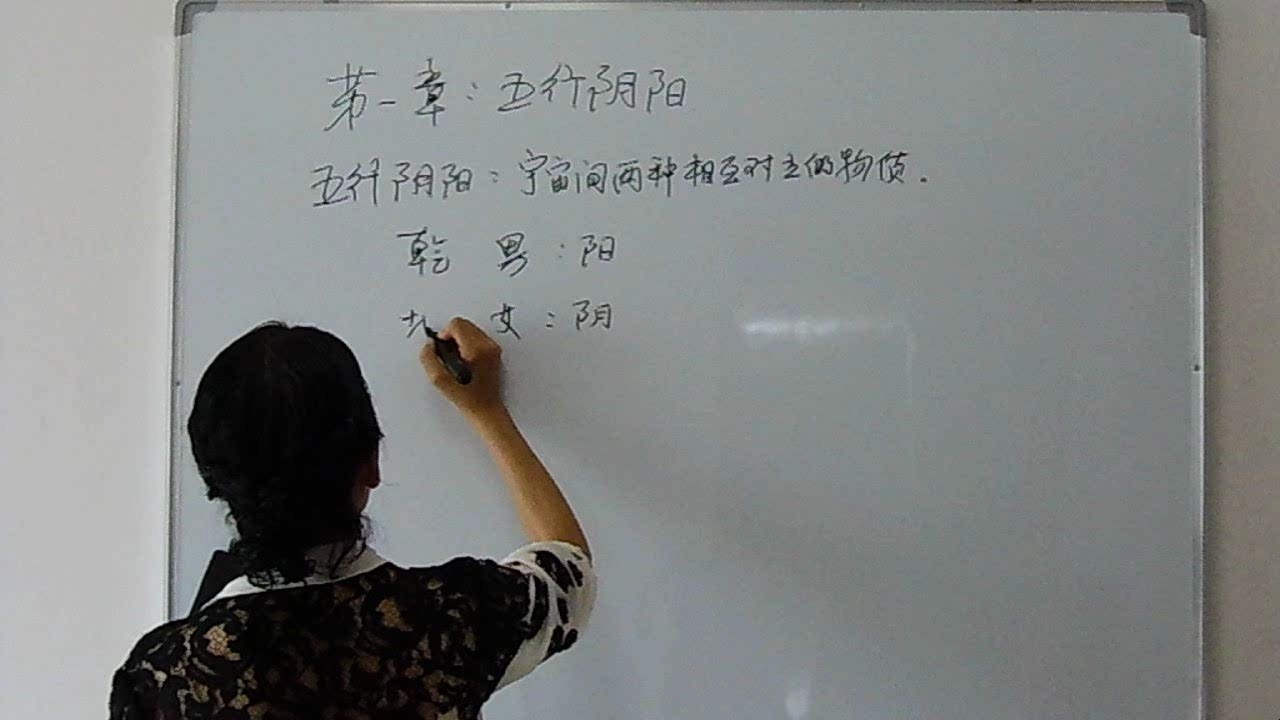 第一章：五行阴阳
五行阴阳：宇宙间两种相互对立的物质.
乾 男：阳
女：阴